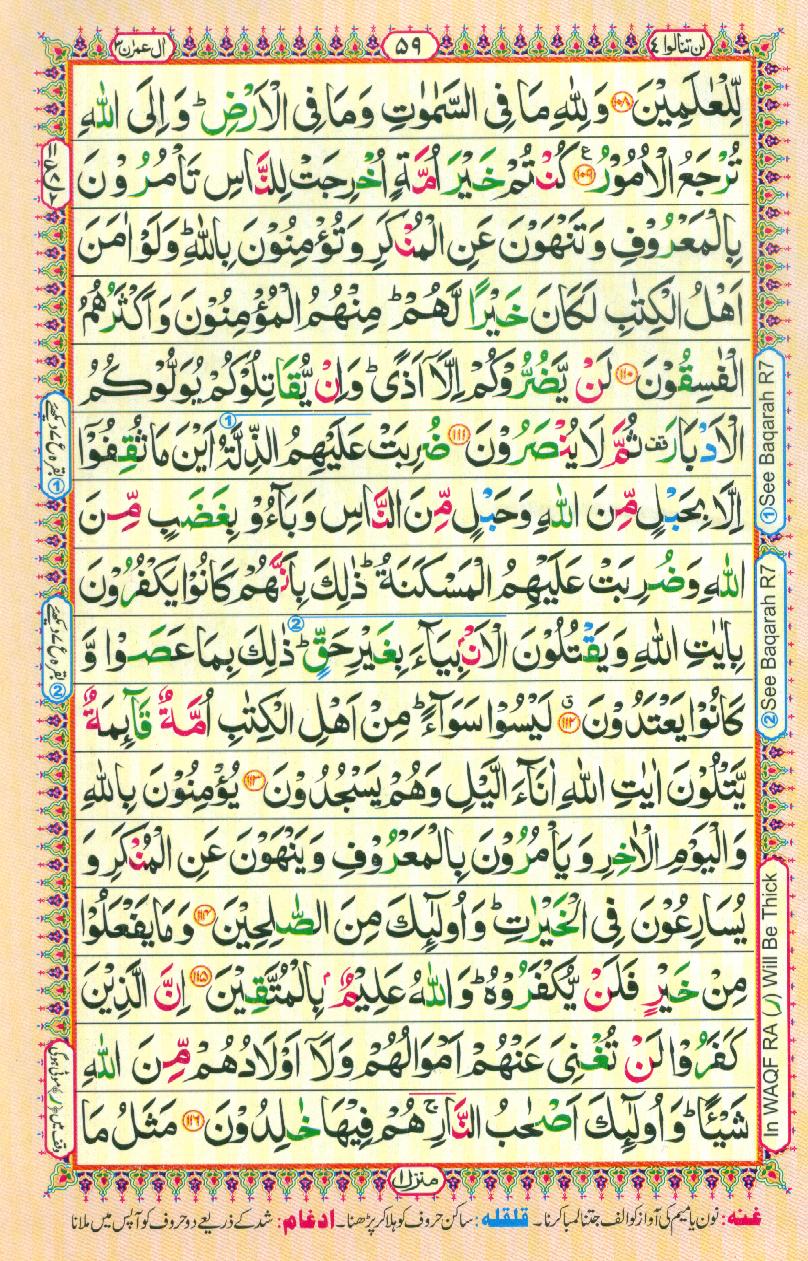 لن تنالوا ٤
٥٩
ال عمرٰن ٣
لِّلْعٰلَمِيْنَ ﴿١٠٨﴾ وَلِلّٰهِ مَا فِى السَّمٰوٰتِ وَمَا فِى الْاَرْضِ ؕ وَاِلَى اللّٰهِ
تُرْجَعُ الْاُمُوْرُ ﴿١٠٩﴾ كُنْتُمْ خَيْرَ اُمَّةٍ اُخْرِجَتْ لِلنَّاسِ تَاْمُرُوْنَ
بِالْمَعْرُوْفِ وَتَنْهَوْنَ عَنِ الْمُنْكَرِ وَتُؤْمِنُوْنَ بِاللّٰهِ ؕ وَلَوْ اٰمَنَ
اَهْلُ الْكِتٰبِ لَكَانَ خَيْرًا لَّهُمْ ؕ مِنْهُمُ الْمُؤْمِنُوْنَ وَاَكْثَرُهُمُ
الْفٰسِقُوْنَ ﴿١١٠﴾ لَنْ يَّضُرُّوْكُمْ اِلَّاۤ اَذًى ؕ وَاِنْ يُّقَاتِلُوْكُمْ يُوَلُّوْكُمُ
الْاَدْبَارَ قف ثُمَّ لَا يُنْصَرُوْنَ ﴿١١١﴾ ضُرِبَتْ عَلَيْهِمُ الذِّلَّةُ اَيْنَ مَا ثُقِفُوْۤا
اِلَّا بِحَبْلٍ مِّنَ اللّٰهِ وَحَبْلٍ مِّنَ النَّاسِ وَبَآءُوْ بِغَضَبٍ مِّنَ
اللّٰهِ وَضُرِبَتْ عَلَيْهِمُ الْمَسْكَنَةُ ؕ ذٰلِكَ بِاَنَّهُمْ كَانُوْا يَكْفُرُوْنَ
بِاٰيٰتِ اللّٰهِ وَيَقْتُلُوْنَ الْاَنْۢبِيَآءَ بِغَيْرِ حَقٍّ ؕ ذٰلِكَ بِمَا عَصَوْا وَّ
كَانُوْا يَعْتَدُوْنَ ﴿١١٢﴾ لَيْسُوْا سَوَآءً ؕ مِنْ اَهْلِ الْكِتٰبِ اُمَّةٌ قَآئِمَةٌ
يَّتْلُوْنَ اٰيٰتِ اللّٰهِ اٰنَآءَ الَّيْلِ وَهُمْ يَسْجُدُوْنَ ﴿١١٣﴾ يُؤْمِنُوْنَ بِاللّٰهِ
وَالْيَوْمِ الْاٰخِرِ وَيَاْمُرُوْنَ بِالْمَعْرُوْفِ وَيَنْهَوْنَ عَنِ الْمُنْكَرِ وَ
يُسَارِعُوْنَ فِى الْخَيْرٰتِ ؕ وَاُولٰٓئِكَ مِنَ الصّٰلِحِيْنَ ﴿١١٤﴾ وَمَا يَفْعَلُوْا
مِنْ خَيْرٍ فَلَنْ يُّكْفَرُوْهُ ؕ وَاللّٰهُ عَلِيْمٌۢ بِالْمُتَّقِيْنَ ﴿١١٥﴾ اِنَّ الَّذِيْنَ
كَفَرُوْا لَنْ تُغْنِىَ عَنْهُمْ اَمْوَالُهُمْ وَلَاۤ اَوْلَادُهُمْ مِّنَ اللّٰهِ
شَيْئًا ؕ وَاُولٰٓئِكَ اَصْحٰبُ النَّارِ ۚ هُمْ فِيْهَا خٰلِدُوْنَ ﴿١١٦﴾ مَثَلُ مَا
① See Baqarah R7
② See Baqarah R7
In WAQF RA (ر) Will Be Thick
منزل ١
غنه: نون یا میم کی آواز کو الف جتنا لمبا کرنا۔ قلقله: ساکن حروف کو ہلا کر پڑھنا۔ ادغام: شد کے ذریعے دو حروف کو آپس میں ملانا